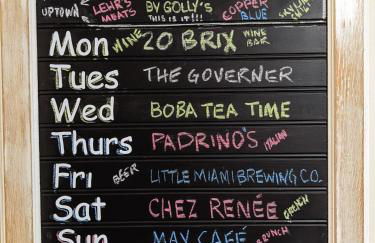 UPTOWN LEHR'S MEATS BY GOLLY'S THIS IS IT!!! COPPER BLUE SKYLINE
Mon WINE 20 BRIX WINE BAR
Tues THE GOVERNER
Wed BOBA TEA TIME
Thurs PADRINO'S ITALIAN
Fri BEER LITTLE MIAMI BREWING CO.
Sat CHEZ RENÉE
Sun MAY CAFÉ BRUNCH